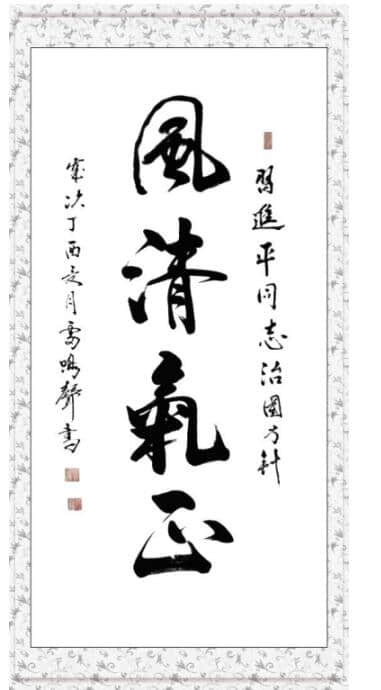 習進平同志治國方針
風清氣正
歲次丁酉月雷鳴聲書